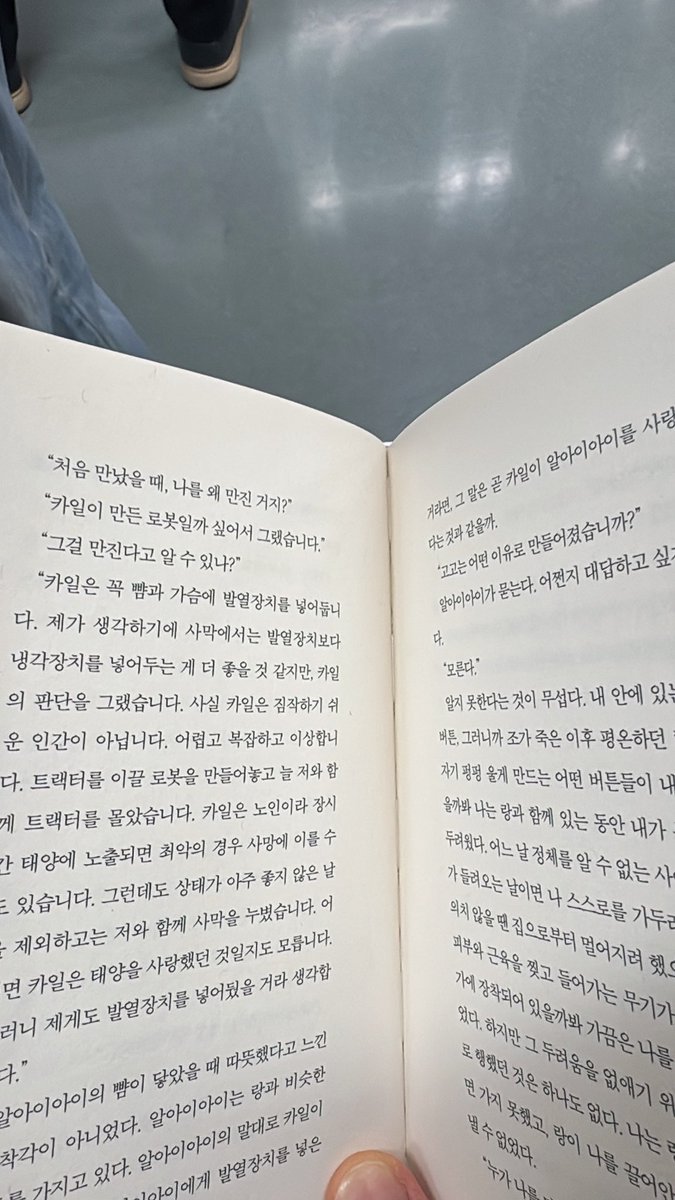 “처음 만났을 때, 나를 왜 만진 거지?”
“카일이 만든 로봇일까 싶어서 그랬습니다.”
“그걸 만진다고 알 수 있나?”
“카일은 꼭 뺨과 가슴에 발열장치를 넣어둡니
다. 제가 생각하기에 사막에서는 발열장치보다
냉각장치를 넣어두는 게 더 좋을 것 같지만, 카일
의 판단을 그랬습니다. 사실 카일은 짐작하기 쉬
운 인간이 아닙니다. 어렵고 복잡하고 이상합니
다. 트랙터를 이끌 로봇을 만들어놓고 늘 저와 함
께 트랙터를 몰았습니다. 카일은 노인이라 장시
간 태양에 노출되면 최악의 경우 사망에 이를 수
도 있습니다. 그런데도 상태가 아주 좋지 않은 날
을 제외하고는 저와 함께 사막을 누볐습니다. 어
면 카일은 태양을 사랑했던 것일지도 모릅니다.
러니 제게도 발열장치를 넣어뒀을 거라 생각합
다.”
알아이아이의 뺨이 닿았을 때 따뜻했다고 느낀
착각이 아니었다. 알아이아이는 랑과 비슷한
를 가지고 있다. 알아이아이의 말대로 카일이
아이에게 발열장치를 넣은
거라면, 그 말은 곧 카일이 알아이아이를 사랑
다는 것과 같을까.
“고고는 어떤 이유로 만들어졌습니까?”
알아이아이가 묻는다. 어쩐지 대답하고 싶지
다.
“모른다.”
알지 못한다는 것이 무섭다. 내 안에 있는
버튼, 그러니까 조가 죽은 이후 평온하던
자기 펑펑 울게 만드는 어떤 버튼들이 내
을까봐 나는 랑과 함께 있는 동안 내가
두려웠다. 어느 날 정체를 알 수 없는 사
가 들려오는 날이면 나 스스로를 가두려
의치 않을 땐 집으로부터 멀어지려 했으
피부와 근육을 찢고 들어가는 무기가
가에 장착되어 있을까봐 가끔은 나를
었다. 하지만 그 두려움을 없애기 위
로 행했던 것은 하나도 없다. 나는
면 가지 못했고, 랑이 나를 끌어안
낼 수 없었다.
“누가 나를